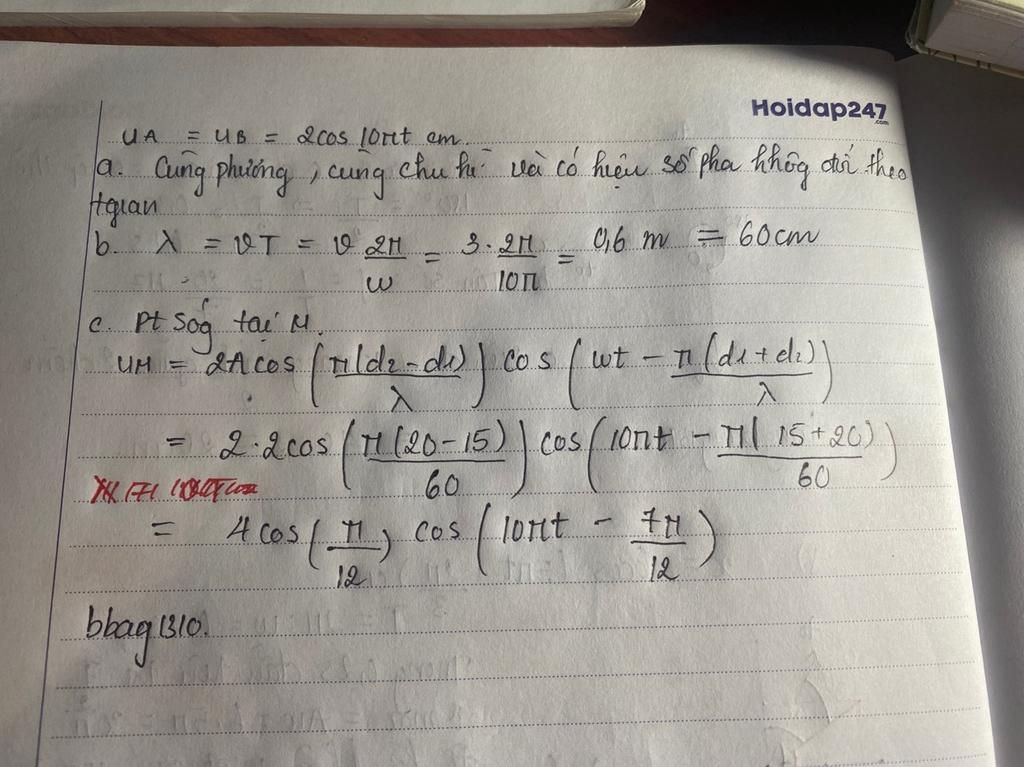 Hoidap247
.com
uA = uB = 2cos 10πt cm.
a. Cùng phương, cùng chu kì và có hiệu số pha khôg đổi theo
tgian
b. λ = vT = v 2π/ω = 3. 2π/10π = 0,6 m = 60cm
c. Pt sóg tại M.
uM = 2A cos (π(d2 - d1)/λ) cos (ωt - π(d1 + d2)/λ)
= 2.2cos (π(20-15)/60) cos (10πt - π(15+20)/60)
= 4cos (π/12) cos (10πt - 7π/12)
bbag1310.